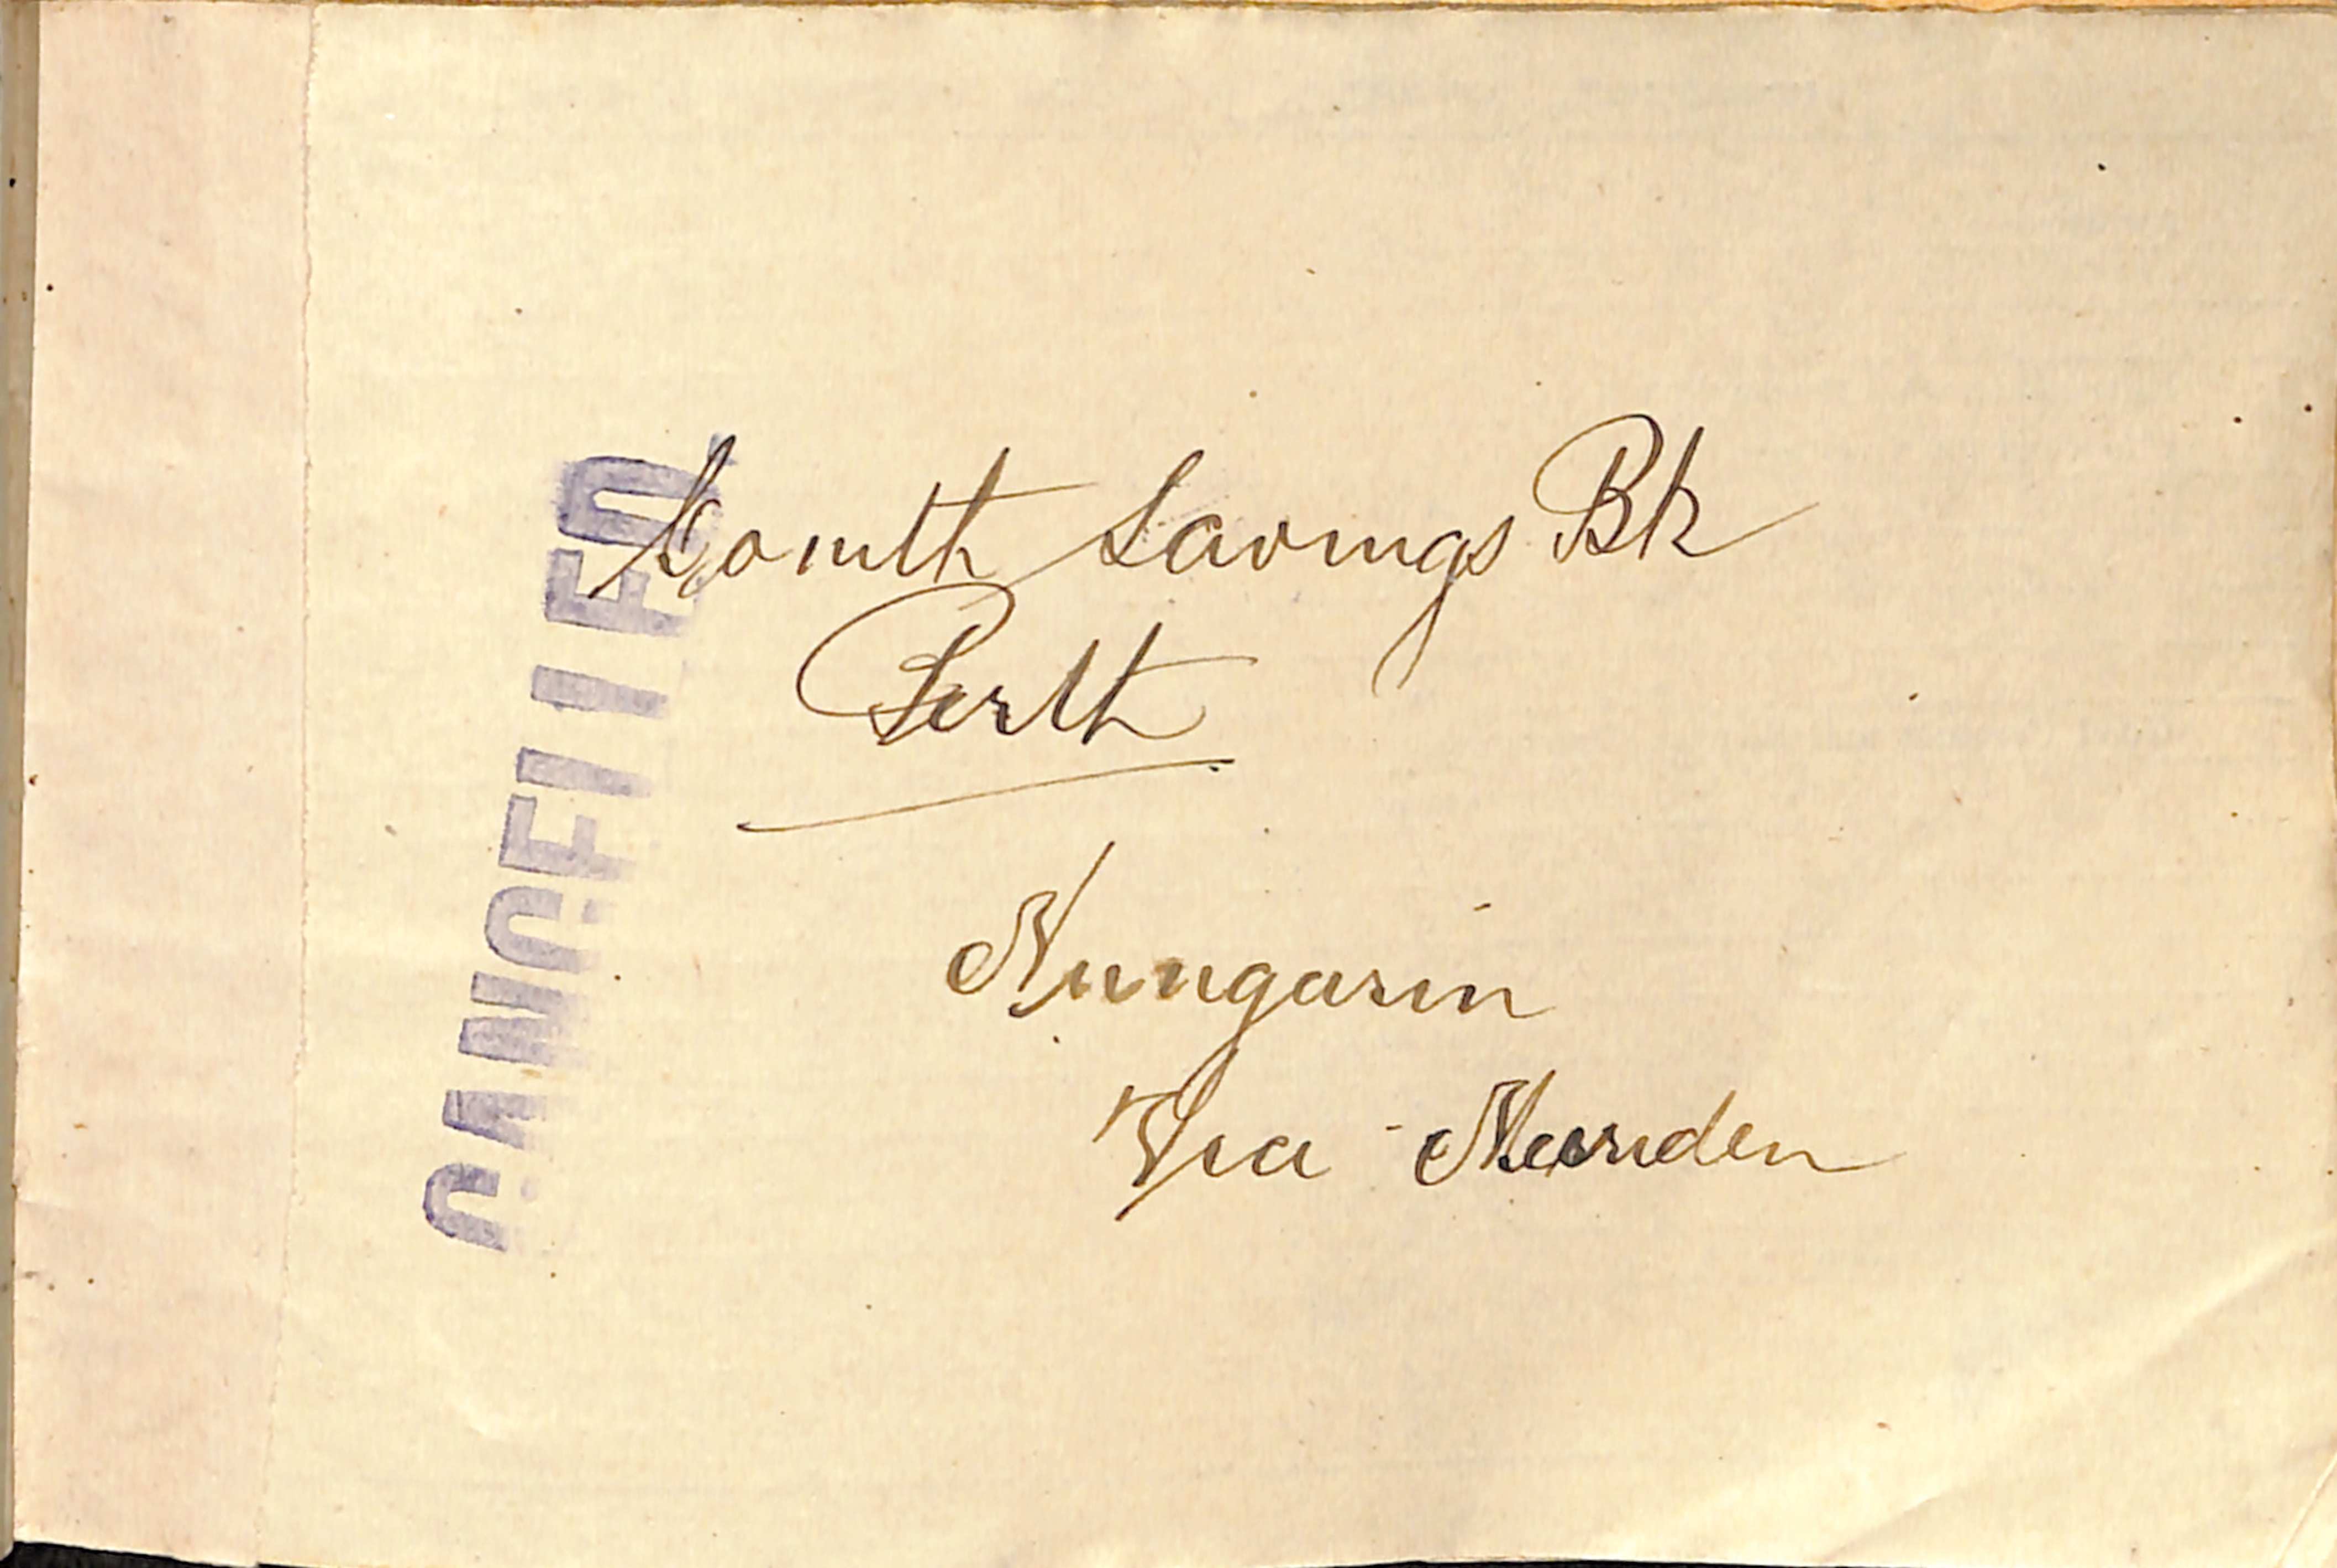 CANCELLED
Comlth Savings Bk
Perth
Nungarin
Via Merriden